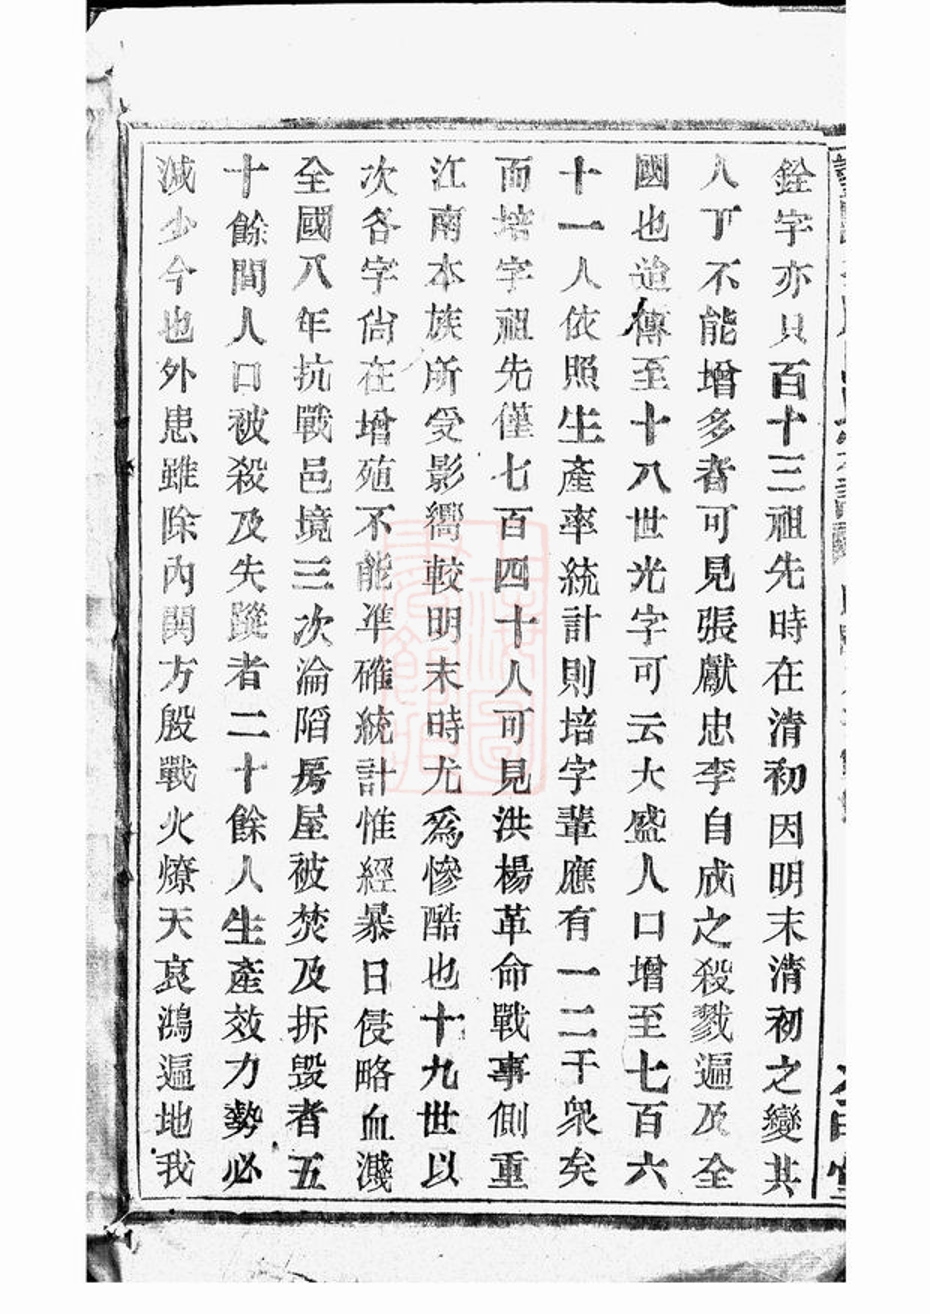 銓字亦只百十三祖先時在清初因明末清初之變其
人丁不能增多者可見張獻忠李自成之殺戮遍及全
國也迨傳至十八世光字可云大盛人口增至七百六
十一人依照生產率統計則培字輩應有一二千衆矣
而培字祖先僅七百四十人可見洪楊革命戰事側重
江南本族所受影嚮較明末時尤為慘酷也十九世以
次各字尙在增殖不能準確統計惟經暴日侵略血濺
全國八年抗戰邑境三次淪陷房屋被焚及拆毀者五
十餘間人口被殺及失蹤者二十餘人生產效力勢必
減少今也外患雖除內鬨方殷戰火燎天哀鴻遍地我